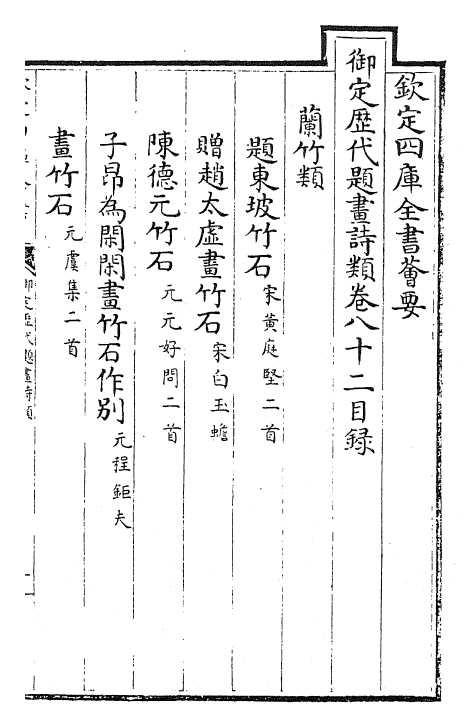 欽定四庫全書薈要
御定歷代題畫詩類卷八十二目録
蘭竹類
題東坡竹石 宋黄庭堅二首
贈趙太虛畫竹石 宋白玉蟾
陳德元竹石 元元好問二首
子昂為閑閑畫竹石作别 元程鉅夫
畫竹石 元虞集二首
御定歷代題畫詩類